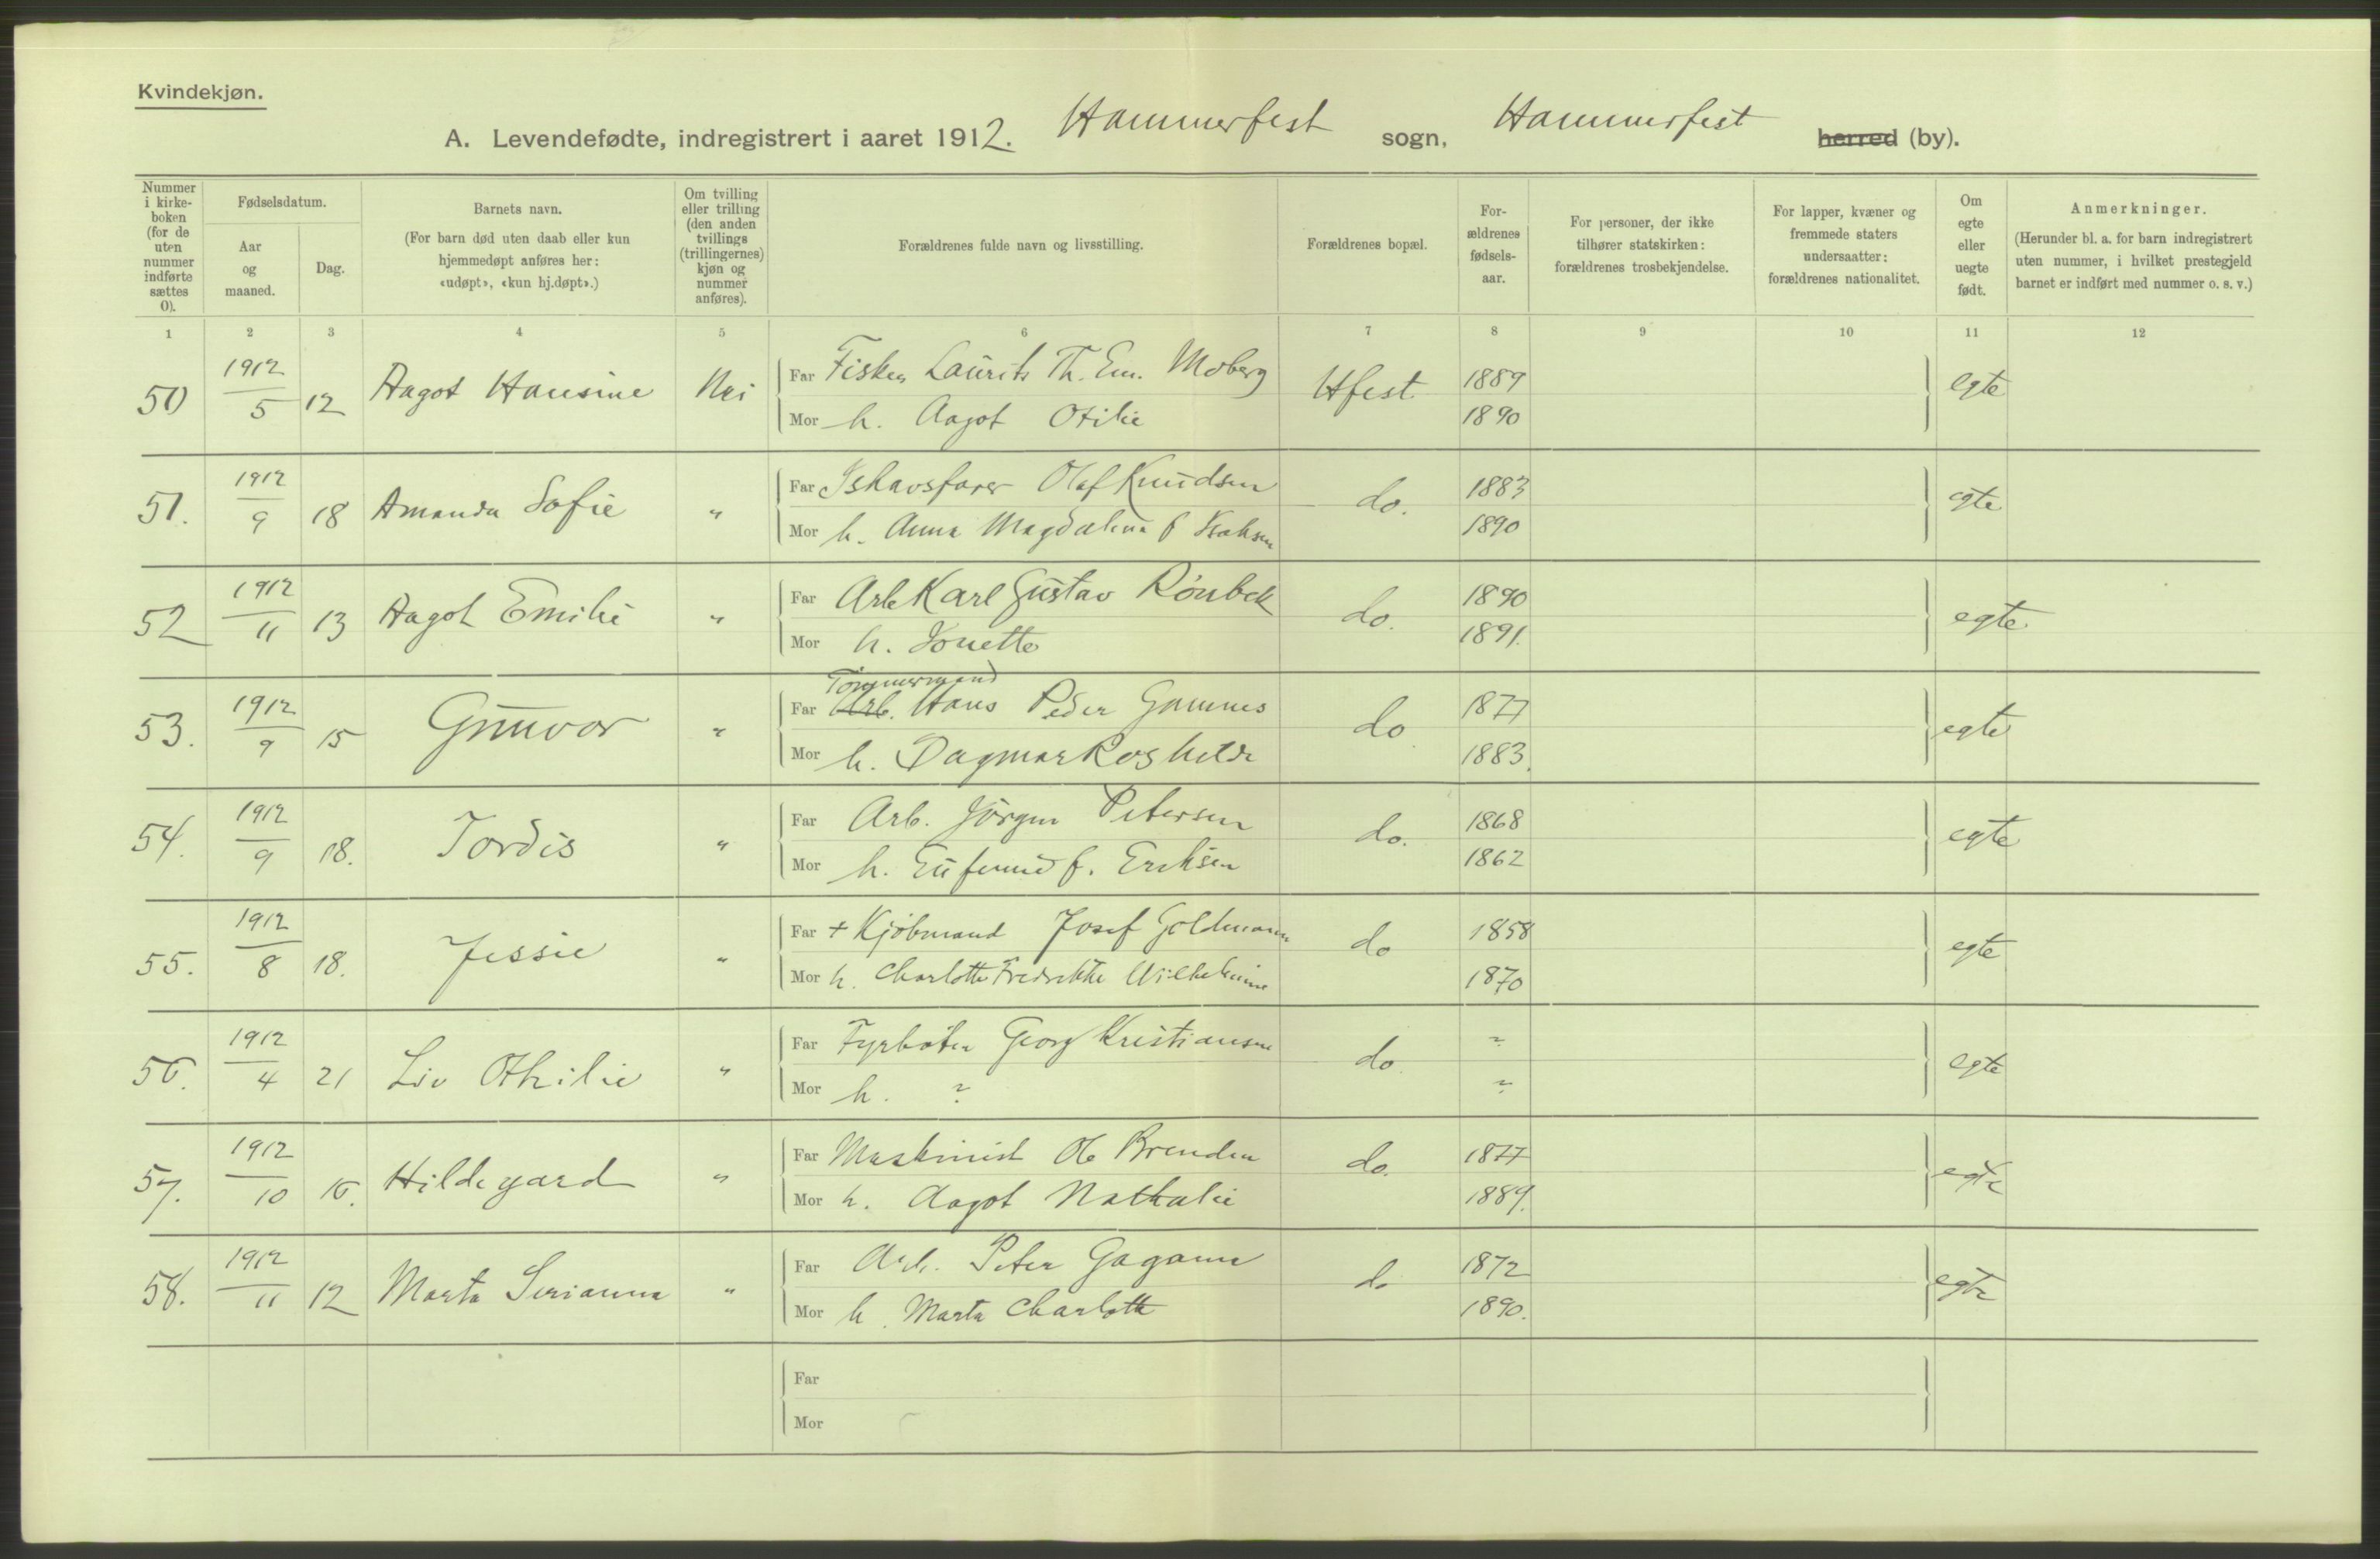 Kvindekjøn.
A. Levendefødte, indregistrert i aaret 1912. Hammerfest sogn, Hammerfest herred (by).
Nummer i kirke-boken (for de uten nummer indførte sættes 0).
Fødselsdatum.
Aar og maaned.
Dag.
Barnets navn.
(For barn død uten daab eller kun hjemmedøpt anføres her: «udøpt», «kun hj.døpt».)
Om tvilling eller trilling (den anden tvillings (trillingernes) kjøn og nummer anføres).
Forældrenes fulde navn og livsstilling.
Forældrenes bopæl.
For-ældrenes fødsels-aar.
For personer, der ikke tilhører statskirken: forældrenes trosbekjendelse.
For lapper, kvæner og fremmede staters undersaatter: forældrenes nationalitet.
Om egte eller uegte født.
Anmerkninger.
(Herunder bl. a. for barn indregistrert uten nummer, i hvilket prestegjeld barnet er indført med nummer o. s. v.)
1 2 3 4 5 6 7 8 9 10 11 12
50 1912/5 12 Aagot Hansine Nei Far Fisker Laurits Th. Em. Moberg Hfest 1889 egte
Mor h. Aagot Otilie 1890
51. 1912/9 18 Amanda Sofie " Far Ishavsfarer Olaf Knudsen do. 1883 egte
Mor h. Anna Magdalena f Isaksen 1890
52 1912/11 13 Aagot Emilie " Far Arb Karl Gustav Rönbek do. 1890 egte
Mor h. Jonette 1891.
53. 1912/9 15 Gunvor " Far Tömmermand Arb. Hans Peder Gamnes do 1877 egte
Mor h. Dagmar Roshilde 1883.
54. 1912/9 18. Tordis " Far Arb. Jörgen Petersen do. 1868 egte
Mor h. Eufemie f. Eriksen 1862
55. 1912/8 18. Jessie " Far + Kjöbmand Josef Goldmann do 1858 egte
Mor h. Charlotte Fredrikke Wilhelmine 1870
56. 1912/4 21 Liv Othilie " Far Fyrböter Georg Kristiansen do ? egte
Mor h. ? ?
57. 1912/10 16. Hildegard " Far Maskinist Ole Brenden do. 1877 egte
Mor h. Aagot Nathalie 1889.
58. 1912/11 12 Marta Serianna " Far Arb. Peter Gagama do 1872 egte
Mor h. Marta Charlotte 1890.
Far
Mor